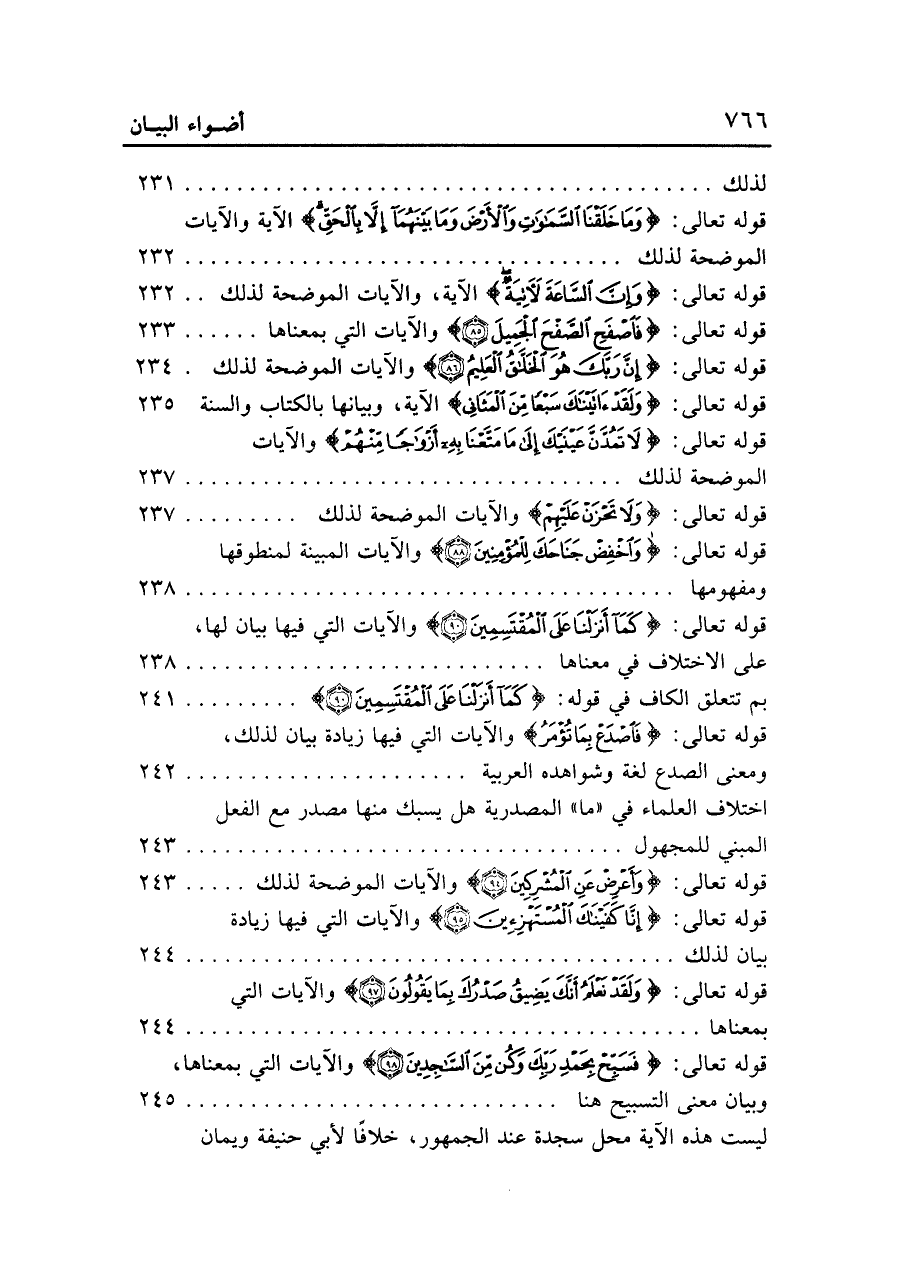 ٧٦٦ أضواء البيان
لذلك . . . . . . . . . . . . . . . . . . . . ٢٣١
قوله تعالى: ﴿وَمَا خَلَقْنَا ٱلسَّمَٰوَٰتِ وَٱلْأَرْضَ وَمَا بَيْنَهُمَآ إِلَّا بِٱلْحَقِّۗ﴾ الآية والآيات
الموضحة لذلك . . . . . . . . . . . . . . . . . . . . ٢٣٢
قوله تعالى: ﴿وَإِنَّ ٱلسَّاعَةَ لَأٓتِيَةٌۖ﴾ الآية، والآيات الموضحة لذلك . . ٢٣٢
قوله تعالى: ﴿فَٱصْفَحِ ٱلصَّفْحَ ٱلْجَمِيلَ ٨٥﴾ والآيات التي بمعناها . . . . . . ٢٣٣
قوله تعالى: ﴿إِنَّ رَبَّكَ هُوَ ٱلْخَلَّٰقُ ٱلْعَلِيمُ ٨٦﴾ والآيات الموضحة لذلك . ٢٣٤
قوله تعالى: ﴿وَلَقَدْ ءَاتَيْنَٰكَ سَبْعًا مِّنَ ٱلْمَثَانِي﴾ الآية، وبيانها بالكتاب والسنة ٢٣٥
قوله تعالى: ﴿لَا تَمُدَّنَّ عَيْنَيْكَ إِلَىٰ مَا مَتَّعْنَا بِهِۦٓ أَزْوَٰجًا مِّنْهُمْ﴾ والآيات
الموضحة لذلك . . . . . . . . . . . . . . . . . . . . ٢٣٧
قوله تعالى: ﴿وَلَا تَحْزَنْ عَلَيْهِمْ﴾ والآيات الموضحة لذلك . . . . . . . . . ٢٣٧
قوله تعالى: ﴿وَٱخْفِضْ جَنَاحَكَ لِلْمُؤْمِنِينَ ٨٨﴾ والآيات المبينة لمنطوقها
ومفهومها . . . . . . . . . . . . . . . . . . . . ٢٣٨
قوله تعالى: ﴿كَمَآ أَنزَلْنَا عَلَى ٱلْمُقْتَسِمِينَ ٩٠﴾ والآيات التي فيها بيان لها،
على الاختلاف في معناها . . . . . . . . . . . . . . . . . . . . ٢٣٨
بم تتعلق الكاف في قوله: ﴿كَمَآ أَنزَلْنَا عَلَى ٱلْمُقْتَسِمِينَ ٩٠﴾ . . . . . . . . . ٢٤١
قوله تعالى: ﴿فَٱصْدَعْ بِمَا تُؤْمَرُ﴾ والآيات التي فيها زيادة بيان لذلك،
ومعنى الصدع لغة وشواهده العربية . . . . . . . . . . . . . . . . . . . . ٢٤٢
اختلاف العلماء في «ما» المصدرية هل يسبك منها مصدر مع الفعل
المبني للمجهول . . . . . . . . . . . . . . . . . . . . ٢٤٣
قوله تعالى: ﴿وَأَعْرِضْ عَنِ ٱلْمُشْرِكِينَ ٩٤﴾ والآيات الموضحة لذلك . . . . . ٢٤٣
قوله تعالى: ﴿إِنَّا كَفَيْنَٰكَ ٱلْمُسْتَهْزِءِينَ ٩٥﴾ والآيات التي فيها زيادة
بيان لذلك . . . . . . . . . . . . . . . . . . . . ٢٤٤
قوله تعالى: ﴿وَلَقَدْ نَعْلَمُ أَنَّكَ يَضِيقُ صَدْرُكَ بِمَا يَقُولُونَ ٩٧﴾ والآيات التي
بمعناها . . . . . . . . . . . . . . . . . . . . ٢٤٤
قوله تعالى: ﴿فَسَبِّحْ بِحَمْدِ رَبِّكَ وَكُن مِّنَ ٱلسَّٰجِدِينَ ٩٨﴾ والآيات التي بمعناها،
وبيان معنى التسبيح هنا . . . . . . . . . . . . . . . . . . . . ٢٤٥
ليست هذه الآية محل سجدة عند الجمهور، خلافًا لأبي حنيفة ويمان